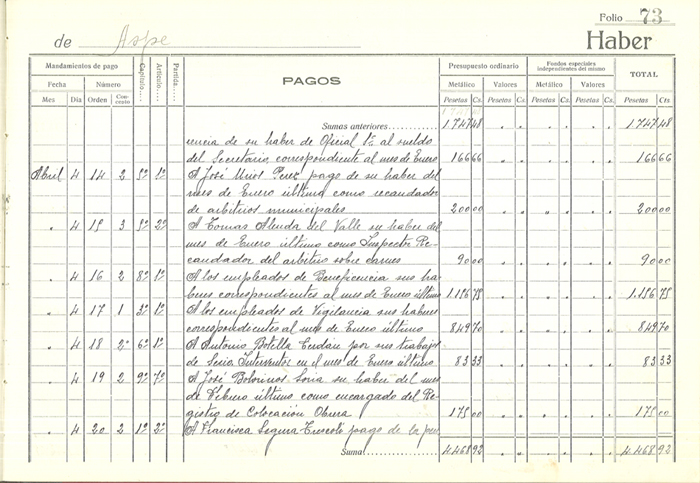 Folio 73
de Aspe Haber
Mandamientos de pago Capítulo.... Artículo.... Partida.... PAGOS Presupuesto ordinario Fondos especiales independientes del mismo TOTAL
Fecha Número Metálico Valores Metálico Valores
Mes Día Orden Concepto Pesetas Cs. Pesetas Cs. Pesetas Cs. Pesetas Cs. Pesetas Cts
Sumas anteriores 1747 48 1747 48
rencia de su haber de Oficial 1º al sueldo
del Secretario, correspondiente al mes de Enero 166 66 166 66
Abril 4 14 2 8º 1º A José Mirot Perez pago de su haber del
mes de Enero último como recaudador
de arbitrios municipales 200 00 200 00
" 4 15 3 8º 2º A Tomas Alenda del Valle su haber del
mes de Enero último como Inspector Re-
caudador del arbitrio sobre carnes 90 00 90 00
" 4 16 2 8º 1º A los empleados de Beneficencia sus ha-
beres correspondientes al mes de Enero último 1.156 75 1.156 75
" 4 17 1 3º 1º A los empleados de Vigilancia sus haberes
correspondientes al mes de Enero último 849 70 849 70
" 4 18 2º 6º 1º A Antonio Botella por sus trabajos
de Interventor en el mes de Enero último 83 33 83 33
" 4 19 2 9º 7º A José Bolorinos Soria su haber del mes
de Febrero último como encargado del Re-
gistro de Colocación Obrera 175 00 175 00
" 4 20 2 1º 2º A Francisca Segura pago de la pen
Suma 4.468 92 4.468 92